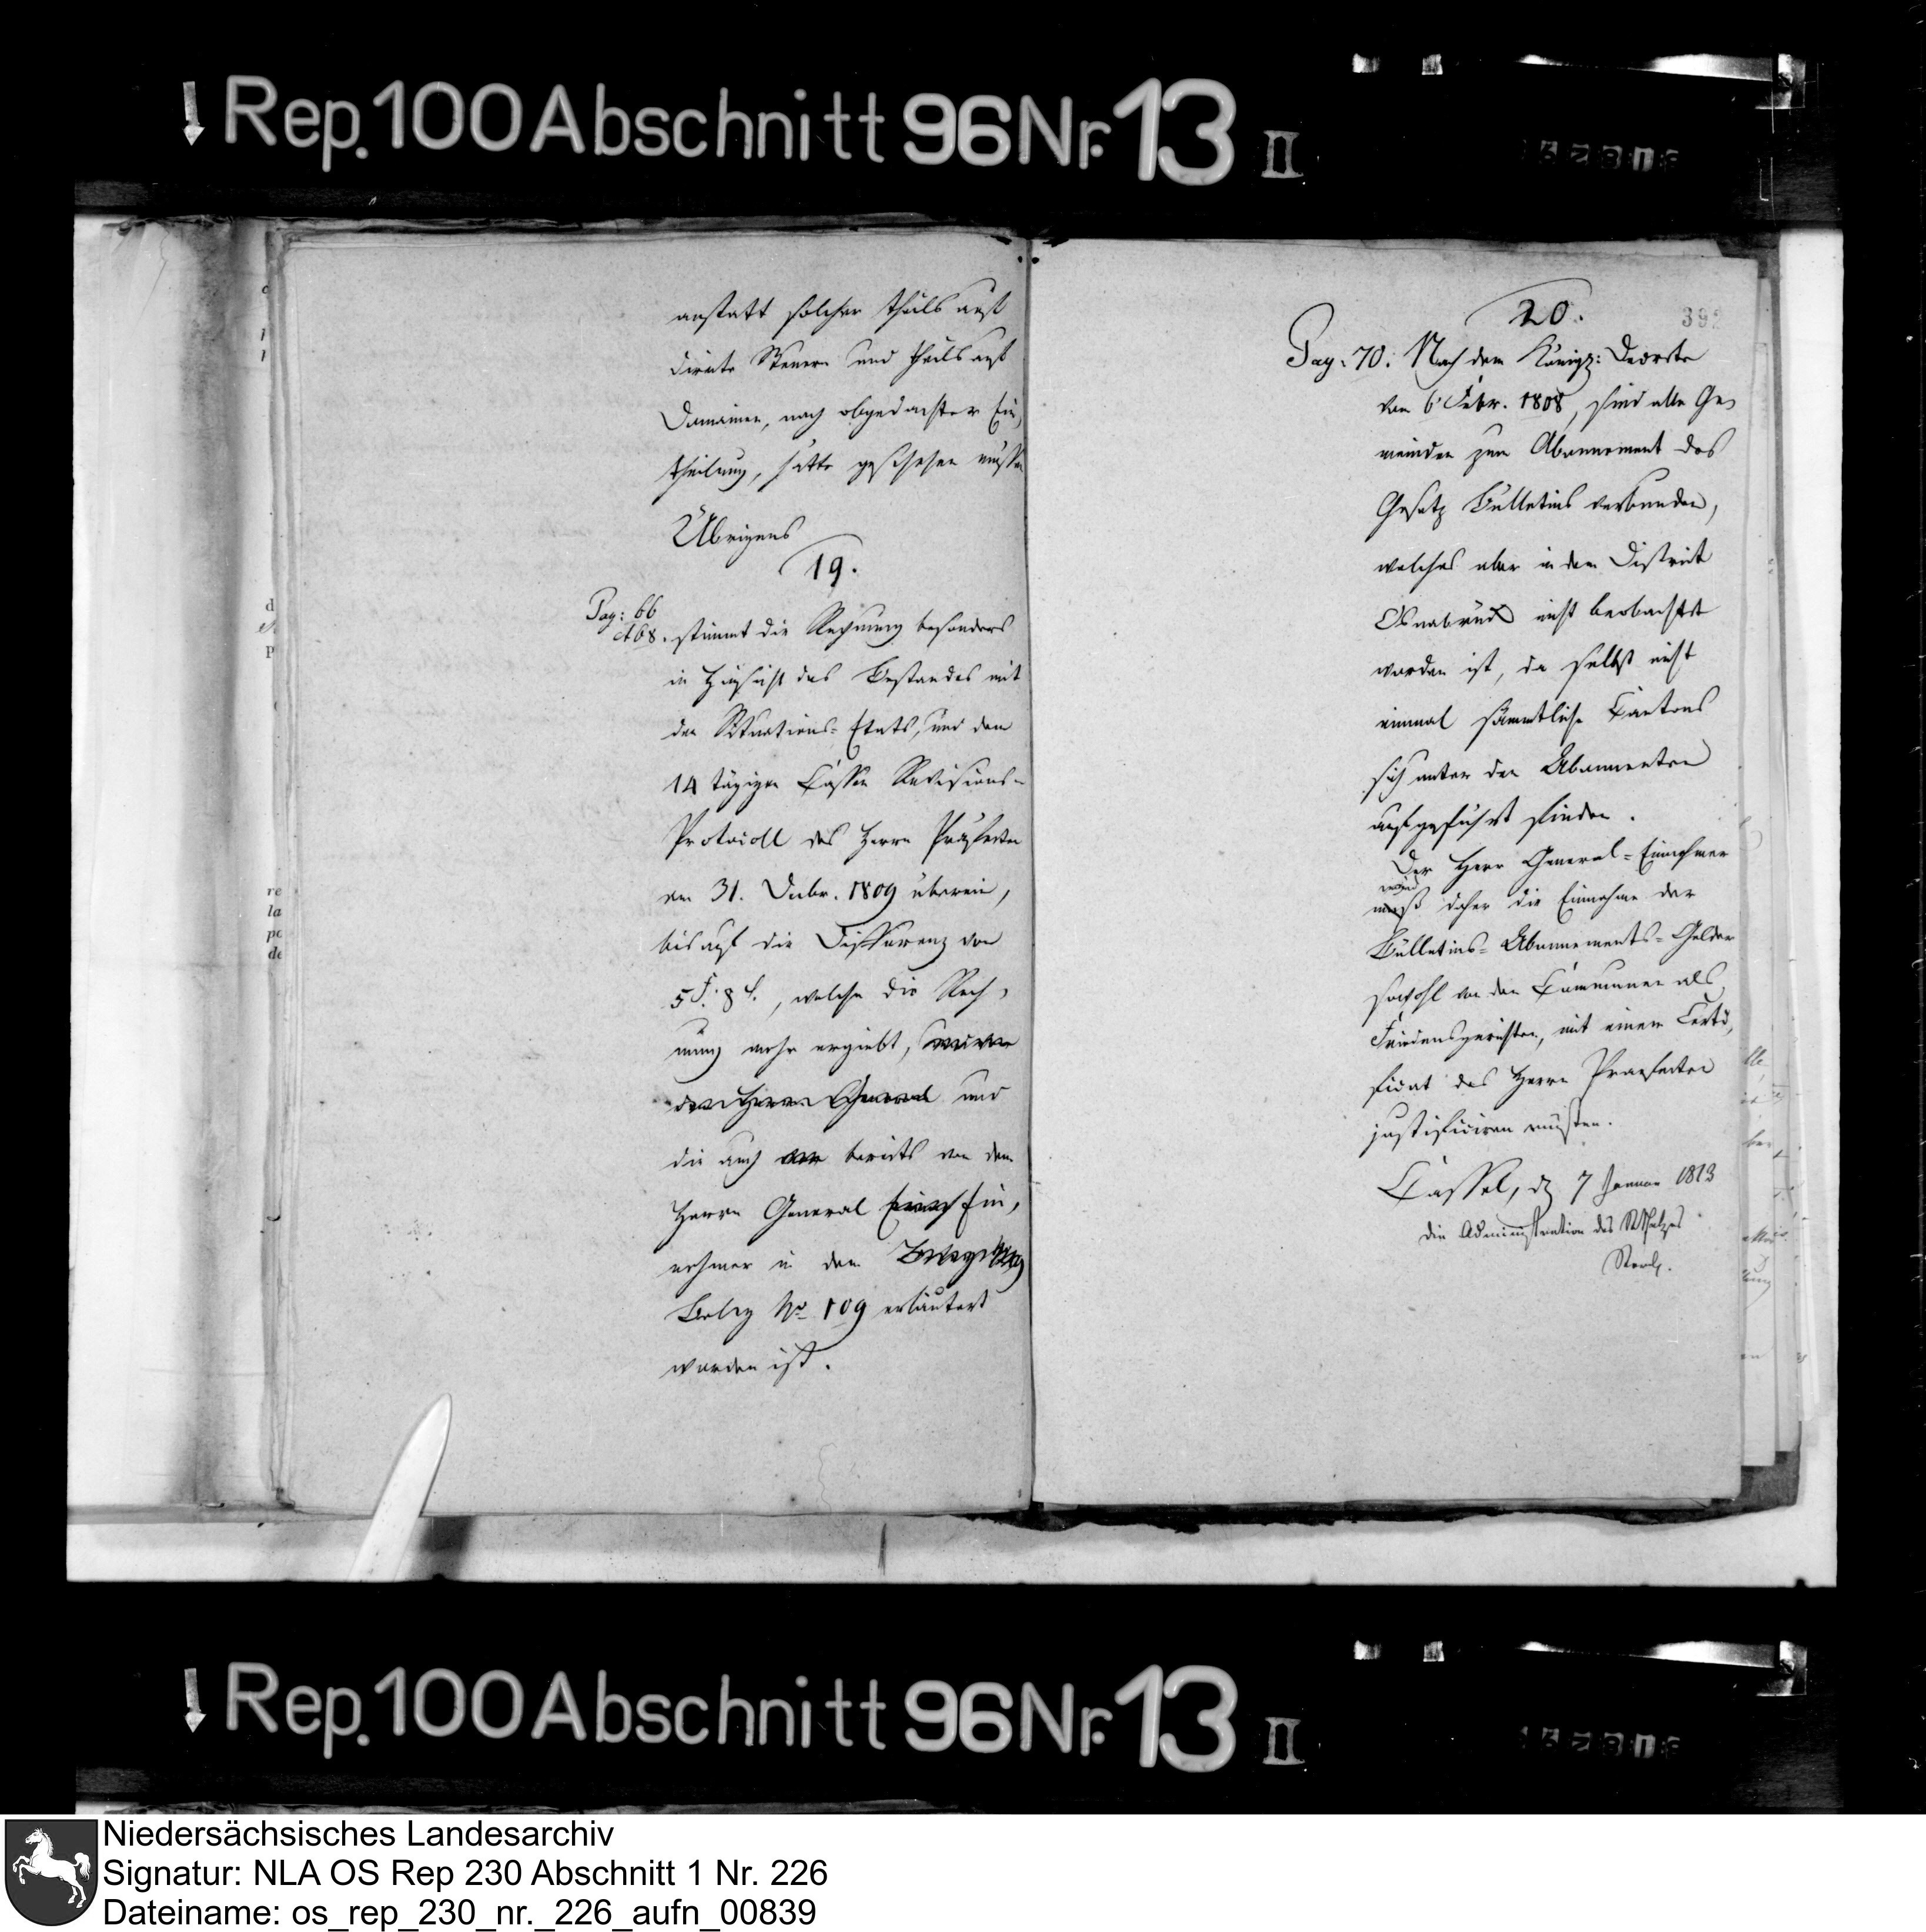 Rep. 100 Abschnitt 96 Nr. 13 II
anstatt solcher theils auf
directe Steuern und theils auf
Domainen, nach obgedachter Ein,
theilung, hätte geschehen müssen
Übrigens
19.
Pag: 66
et 68. stimmt die Rechnung besonders
in Hinsicht des Bestandes mit
den Situations-Etats, und dem
14 tägigen Cassen Revisions-
Protocoll des Herrn Präfecten
am 31. Decbr. 1809 überein,
bis auf die Differenz von
5 f. 8 c., welche die Rech,
nung mehr ergiebt,
der Herrn General und
die auch bereits von dem
Herrn General Ein,
nehmer in dem
Beleg No 109 erläutert
worden ist.
392
20.
Pag: 70. Nach dem Königl: Decrete
vom 6 Febr. 1808, sind alle Ge,
meinden zum Abonnement des
Gesetz Bülletins verbunden,
welches aber in dem District
Osnabrück nicht beobachtet
worden ist, da selbst nicht
einmal sämmtliche Cantons
sich unter den Abonnenten
aufgeführt finden.
Der Herr General-Einnehmer
wird
muß daher die Einnahme der
Bülletins-Abonnements-Gelder
sowohl von den Communen als
Friedensgerichten, mit einem Certi,
ficat des Herrn Praefecten
justificiren müssen.
Cassel, d 7 Januar 1813
Die Administration des Schatzes
Rep. 100 Abschnitt 96 Nr. 13 II
Niedersächsisches Landesarchiv
Signatur: NLA OS Rep 230 Abschnitt 1 Nr. 226
Dateiname: os_rep_230_nr._226_aufn_00839